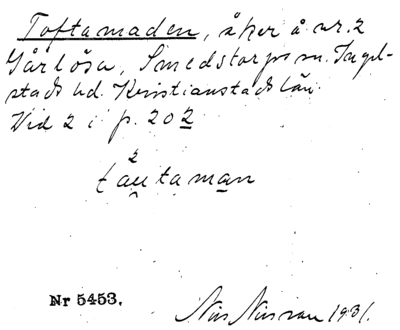 Toftamaden, åker å nr. 2
Gårlösa, Smedstorps sn. Ingel-
stads hd. Kristianstads län
Vid 2 i p. 202
2
tau̯taman
Nr 5453.
Nils Nilsson 1931.